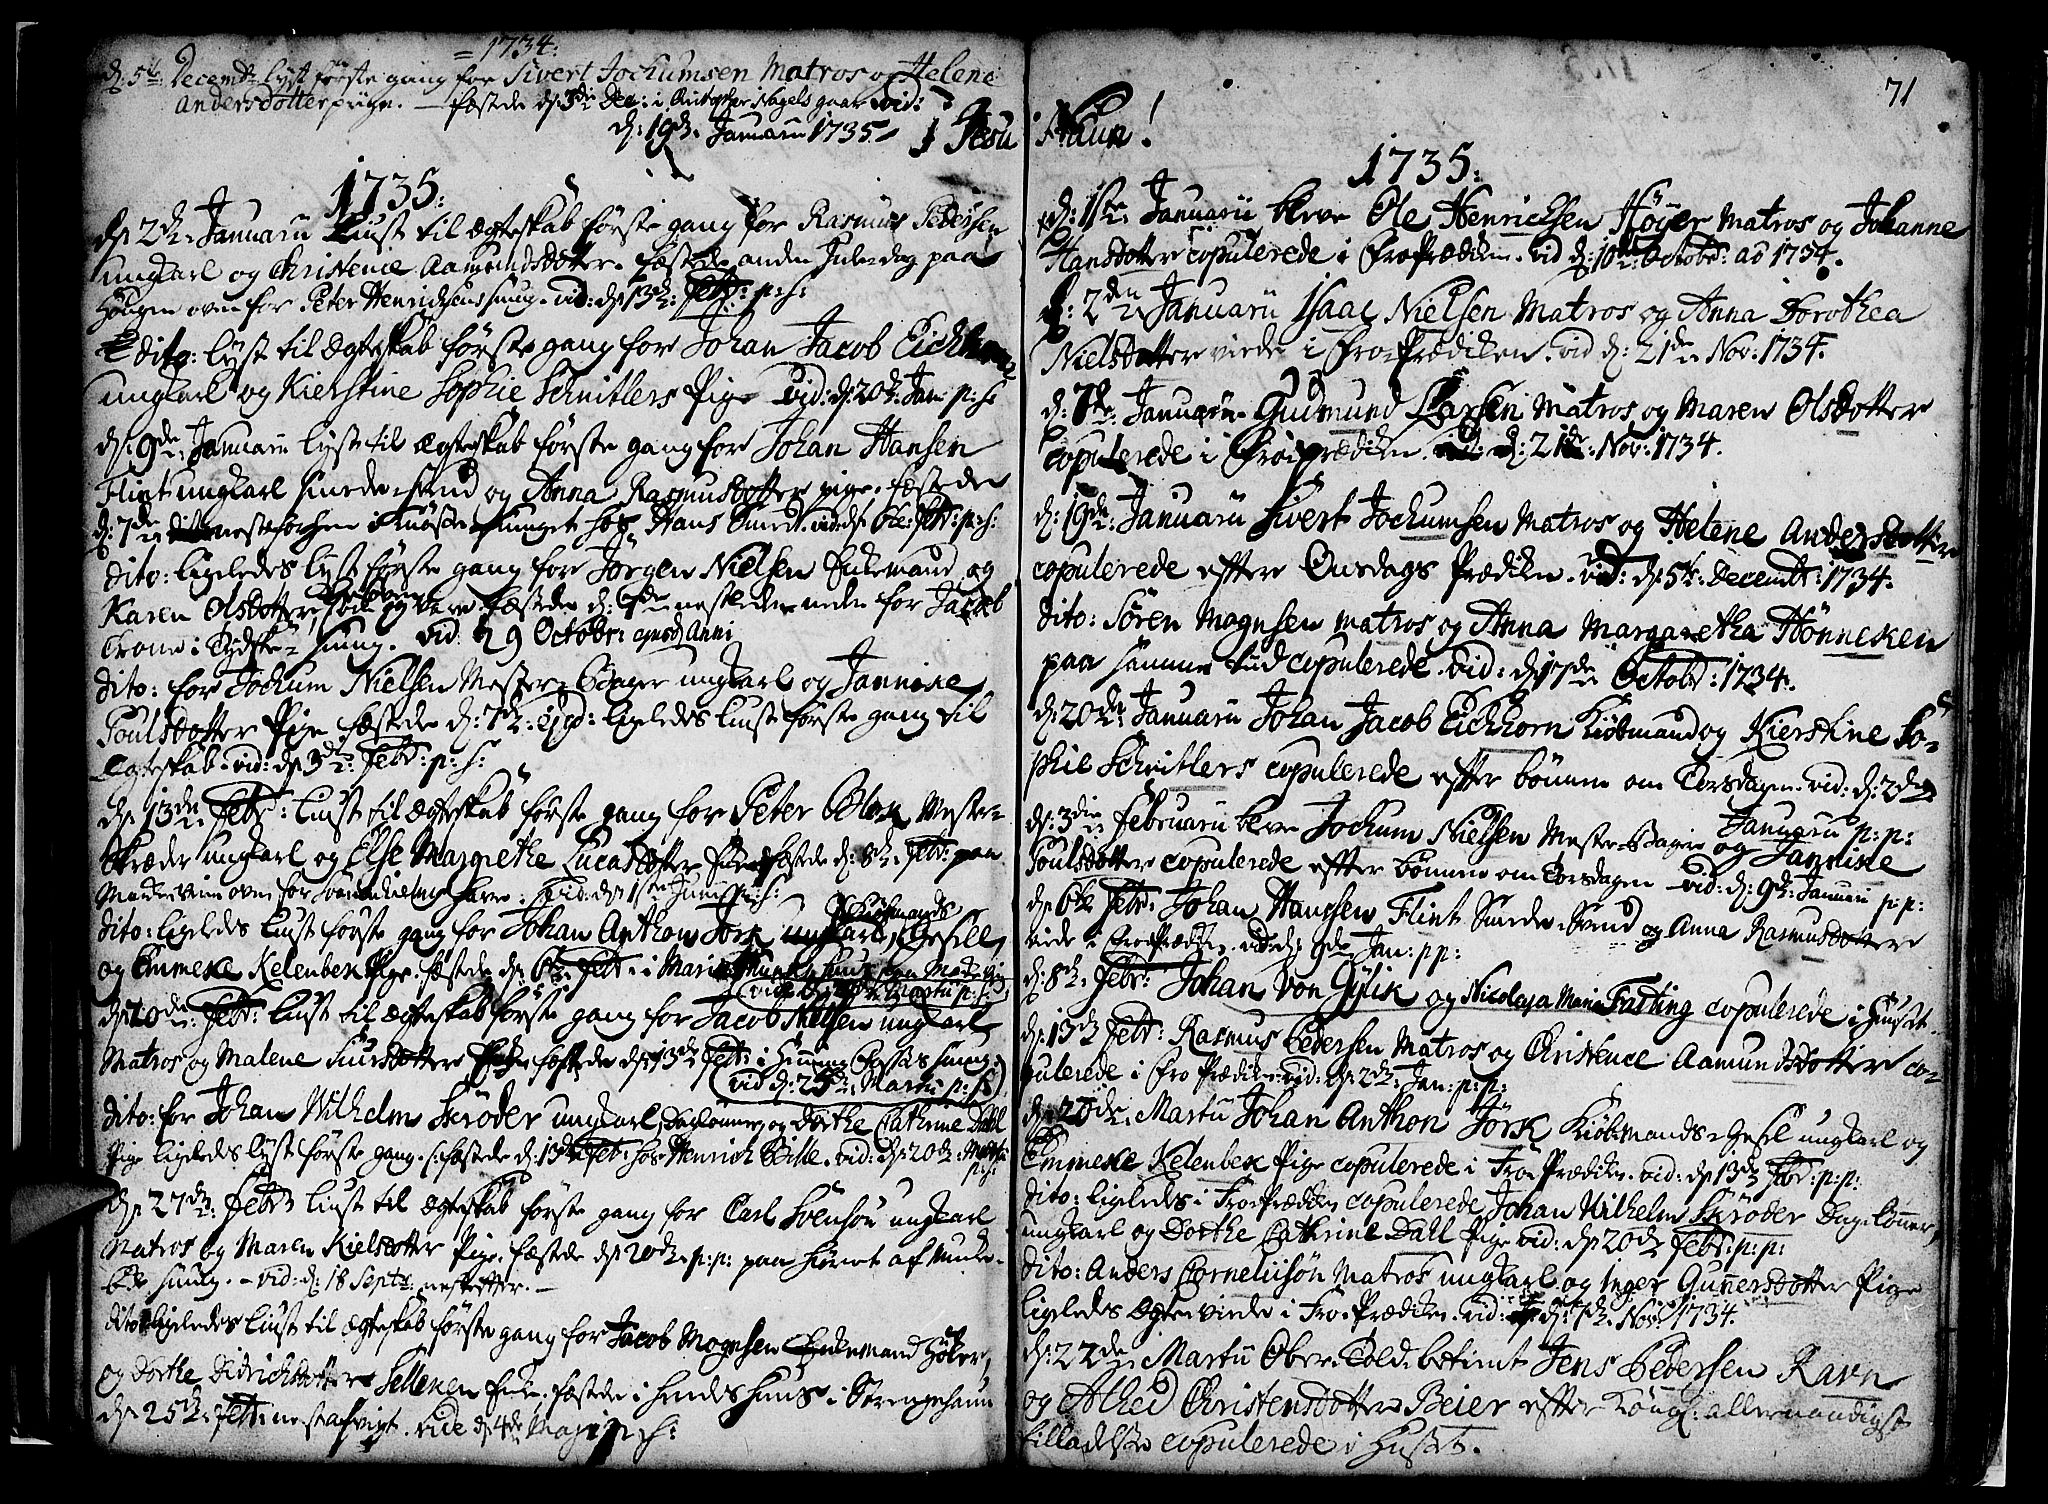 = 1734:
d: 5te Decembr lyst første gang for Sivert Jochumsen Matros og Helene
Andersdotter pige. — fæstede d: 3die Dec: i Christopher Nagels gaar vid:
d: 19de Januarii 1735
J Jesu
1735:
d: 2de Januarii liust til ægteskab første gang for Rasmus Pedersen
ungkarl og Christence Aamundsdotter. fæstede anden Juledag paa
Hougen oven for Peter Henrichsens smug. vid: d: 13de Febr: p: s:
dito: lyst til ægteskab første gang for Johan Jacob Eichhorn
ungkarl og Kierstine Sophie Schnitlers Pige vid: d: 20de Jan: p: s:
d: 9de Januarii lyst til ægteskab første gang for Johan Hansen
Flint ungkarl smede-svend og Anna Rasmusdotter pige. fæstede
d: 7de hos Hans Smed. vid: d: 6te Febr: p: s:
dito: ligeledes lyst første gang for Jörgen Nielsen Enkemand og
Karen Olsdotter fæstede d: 7de nestleden neden for Jacob
Trane i Tydske-smug. vid: 29 Octobr: ejusd Anni
dito: for Jochum Nielsen Mester-Bager ungkarl og Jannike
Poulsdotter Pige fæstede d: 7de ejsd: ligeledes liust første gang til
Ægteskab. vid: d: 3die Febr: p: s:
d: 13de Febr: liust til ægteskab første gang for Peter Block Mester-
Skræder ungkarl og Else Margrethe Lucasdotter fæstede d: 8de Febr: paa
vid: d: 1ste Junii p: s:
dito: ligeledes liust første gang for Johan Anthon Jörk Kiøbmands Gesell,
og Emmeke Kelenbek Pige. fæstede d: 6te Febr: i
d: 20de Febr: liust til ægteskab første gang for Jacob Nielsen ungkarl
Matros og Malene Siursdotter fæstede d: 13de Febr: i
vid d: 25de Martii p: s:
dito: for Johan Wilhelm Skröder ungkarl, Dagløner, og Dorthe Cathrine Dahl
Pige ligeledes lyst første gang. fæstede d: 13de Feb: hos Henrich Bille. vid: d: 20de Martii
p: s:
d: 27de Febr: liust til ægteskab første gang for Carl Svensön ungkarl
Matros og Maren Kielsdotter Pige. fæstede d: 20de p: p: paa hiørnet af Mule-
smug. — vid: d: 18 Septr. nestefter. —
dito: ligeledes liust til ægteskab første gang for Jacob Mognsen Enkemand Höker,
og Dorthe Didrichsdotter Selleken Enke. fæstede i hendes huus i Strangehaun
d: 25de Febr: nest afvigt. vide d: 4de Maji p: s:
71
Naun!
1735:
d: 1ste Januarii bleve Ole Henrichsen Höyer Matros og Johanne
Hansdotter copulerede i FroPrædiken. vid d: 10de Octobr: ao 1734.
d: 2den Januarii Isaac Nielsen Matros og Anna Dorothea
Nielsdotter viede i Fro-Prædiken. vid d: 21de Nov: 1734.
d: 7de Januarii Gudmund Larsen Matros og Maren Olsdotter
copulerede i Froprædiken. vid: d: 21de Nov: 1734.
d: 19de Januarii Sivert Jochumsen Matros og Helene Andersdotter
copulerede efter Onsdags Prædiken. vid: d: 5te Decembr: 1734.
dito: Sören Mognsen Matros og Anna Margaretha Hönneken
paa samme tiid copulerede. vid: d: 17de Octobr: 1734.
d: 20de Januarii Johan Jacob Eichhorn Kiøbmand og Kierstine So-
phie Schnitlers copulerede efter bønnen om Torsdagen. vid: d: 2de
Januarii p: p:
d: 3die Februarii bleve Jochum Nielsen Mester-Bager og Jannike
Poulsdotter copulerede efter bønnen om Torsdagen vid: d: 9de Januarii p: p:
d: 6te Febr: Johan Hanssen Flint Smede-Svend og Anna Rasmusdotter
viede i FroPrædiken. vid: d: 9de Jan: pp:
d: 8de Febr: Johan von Gylik og Nicolaja Maria Fasting copulerede i Huuset.
d: 13de Febr: Rasmus Pedersen Matros og Christence Aamundsdotter co-
pulerede i FroPrædiken. vid: d: 2de Jan: p: p:
d: 20de Martii Johan Anthon Jörk Kiøbmands-Gesel ungkarl og
Emmeke Kelenbek Pige copulerede i Fro-Prædiken. vid: d: 13de Febr: p: p:
dito: ligeledes i Fro-Prædiken copulerede Johan Wilhelm Skröder Dagelönner,
ungkarl og Dorthe Cathrine Dall Pige vid: d: 20de Febr: p: p:
dito: Anders Corneliusön Matros ungkarl og Inger Gunnersdotter Pige
ligeledes ægteviede i Fro-Prædiken. vid: d: 7de Nov: 1734.
d: 22de Martii Ober-Told-betient Jens Pedersen Ravn
og Alhed Christensdotter Beier efter Kongl: allernaadigst
tilladelse copulerede i Huset.